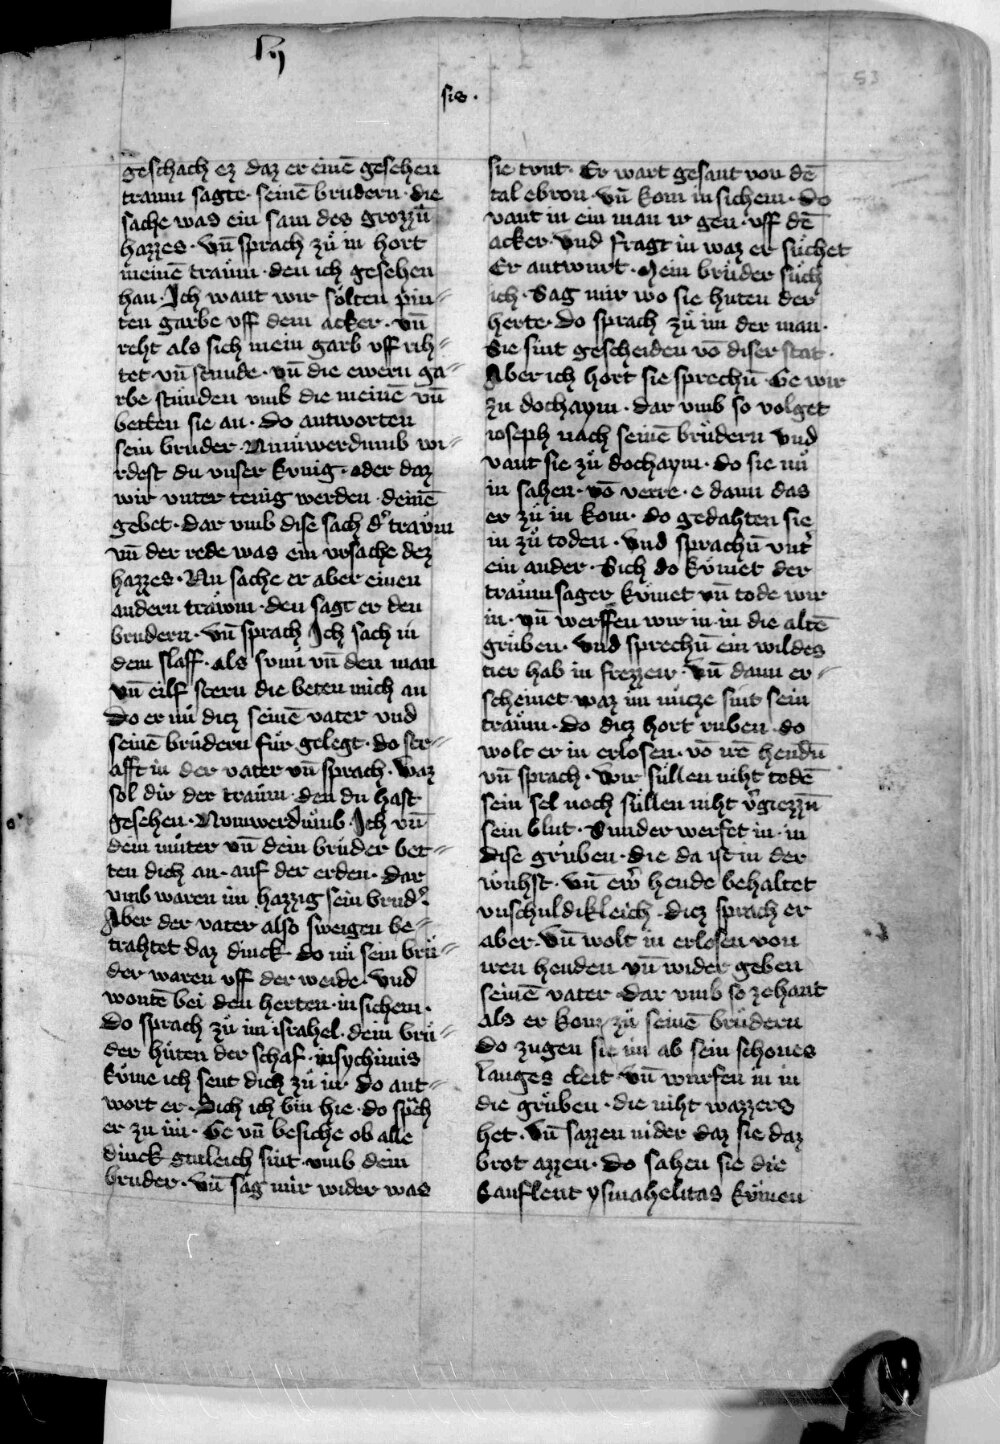 sis.
53
geschach ez daz er einē gesehen
traum sagte seinē brudern · die
sache was ein sam des grozzū
hazzes · vn̄ sprach zů in hort
meinē traům · den ich gesehen
han · Ich want wir sölten pin
ten garbe vff dem acker · vn̄
reht als sich mein garb vff rih
tet · vn̄ stunde · vn̄ die ewern ga
rbe stůnden vmb die meinē vn̄
betten sie an · do antworten
sein bruder · Nuuwerdumb wi
rdest du vnser kvnig · oder daz
wir vnter tenig werden · deinē
gebet · dar vmb dise sach d' traům
vn̄ der rede was ein vrsache dez
hazzes · Nu sache er aber einen
andern traům · den sagt er den
brudern · vn̄ sprach Ich sach in
dem slaff · als svnn vn̄ den man
vn̄ eilf stern die beten mich an
do er nů ditz seinē vater vnd
seinē brůdern für gelegt · do str
afft in der vater vn̄ sprach · waz
sol dir der traům · den du hast
gesehen · Nunwerdůmb · Ich vn̄
dein můter vn̄ dein brůder bet
ten dich an · auf der erden · dar
vmb waren im hazzig sein brud'
Aber der vater also sweigen be
trahtet daz dinck · do nů sein brů
der waren vff der weide · vnd
wontē bei den herten · in sichem ·
do sprach zů im israhel · dein brů
der hůten der schaf · in sychimis
kvme ich sent dich zů in · do ant
wort er · Sich ich bin hie · do sp̄ch
er zu im · Ge vn̄ besiche ob alle
dinck gutleich sint · vmb dein
bruder · vn̄ sag mir wider was
sie tvnt · Er wart gesant von dē
tal ebron · vn̄ kom in sichem · do
vant in ein man irr gen · vff dē
acker · vnd fragt in waz er sůchet
Er antwurt · Mein brůder sůch
ich · Sag mir wo sie huten der
herte · do sprach zů im der man ·
Sie sint gescheiden vō diser stat ·
Aber ich hort sie sprechū · Ge wir
zu dochaym · dar vmb so volget
ioseph nach seinē brůdern vnd
vant sie zů dochaym · do sie nů
in sahen · vō verre · e dann das
er zů in kom · do gedahten sie
in zů toden · vnd sprachū vnt'
ein ander · Sich do kvmet der
traům sager kvmet vn̄ tode wir
in · vn̄ werffen wir in · in die altē
grůben · vnd sprechū ein wildes
tier hab in frezzen · vn̄ dann er
scheinet waz im nůcze sint sein
traům · do ditz hort ruben · do
wolt er in erlosen · vō irē hendū
vn̄ sprach · wir süllen niht todē
sein sel noch süllen niht v'giezzū
sein blut · Sunder werfet in · in
dise grůben · die da ist in der
wůhst · vn̄ ew' hende behaltet
vnschuldikleich · ditz sprach er
aber · vn̄ wolt in erlosen von
iren henden vn̄ wider geben
seinē vater · dar vmb so zehant
als er kom zů seinē brůdern
do zugen sie im ab sein schones
langes cleit · vn̄ wurfen in in
die grůben · die niht wazzers
het · vn̄ sazzen nider daz sie daz
brot azzen · do sahen sie die
kaufleut ysmahelitas kvmen